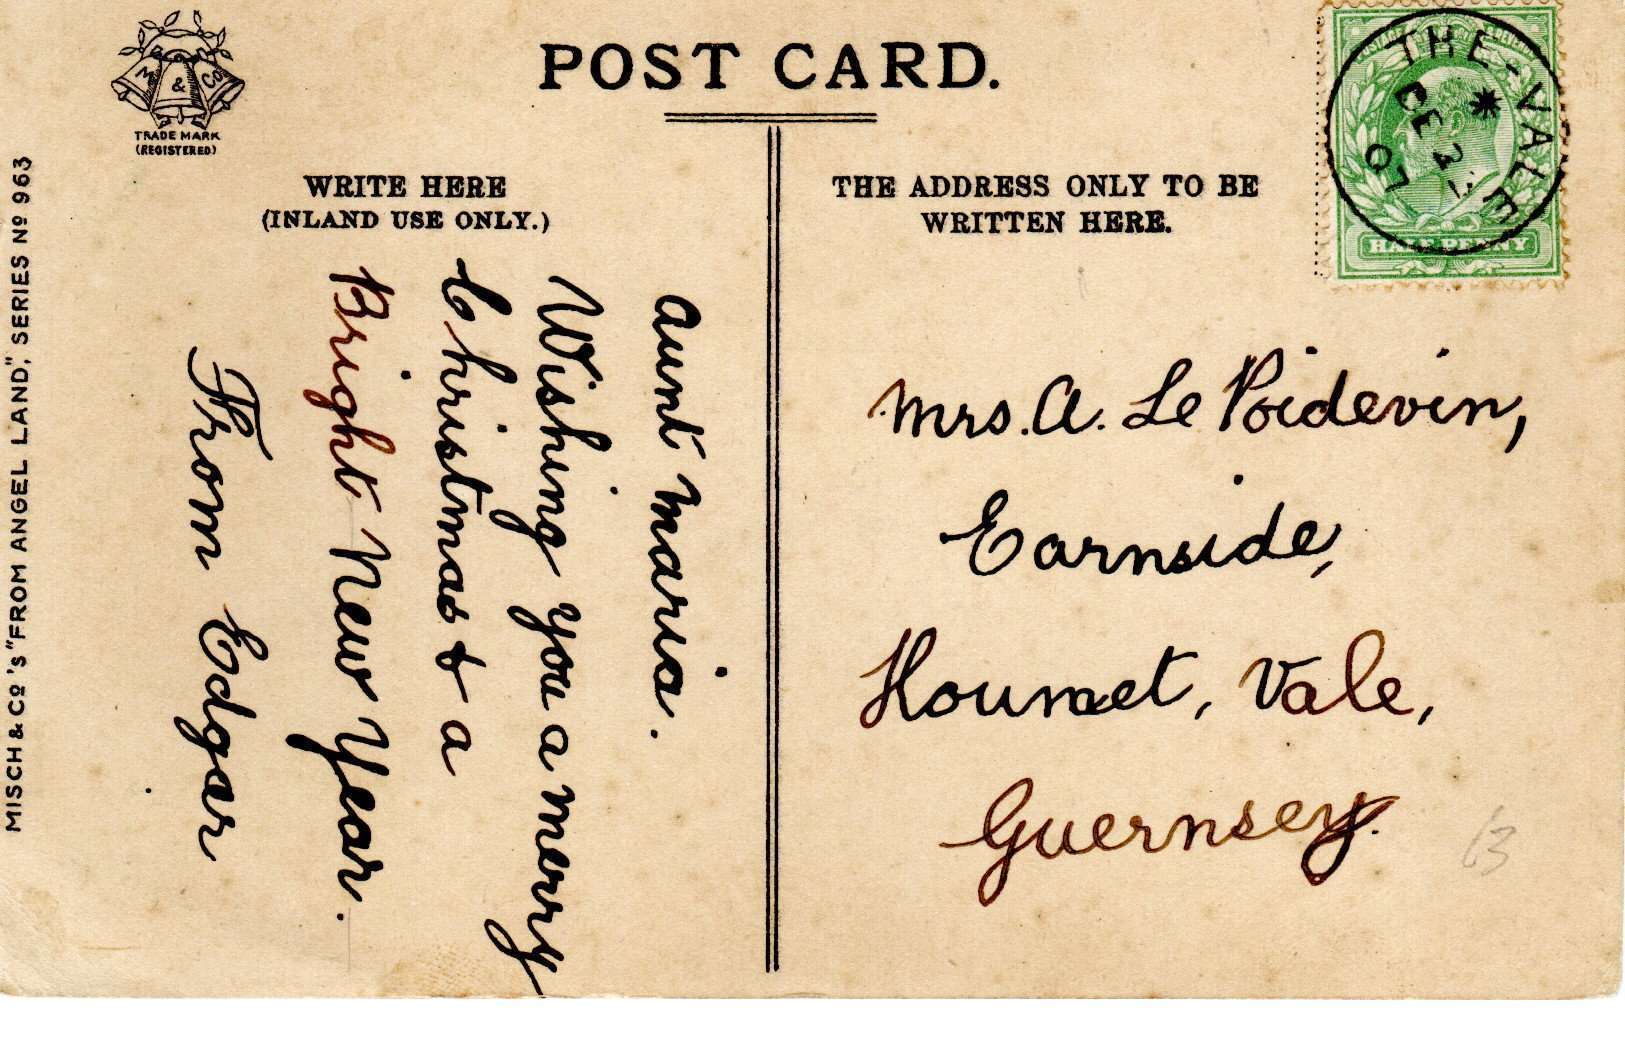 M & Co
TRADE MARK
(REGISTERED)
POST CARD.
WRITE HERE
(INLAND USE ONLY.)
THE ADDRESS ONLY TO BE
WRITTEN HERE.
MISCH & Co's "FROM ANGEL LAND," SERIES No 963
Aunt Maria.
Wishing you a merry
Christmas & a
Bright New Year.
From Edgar
THE-VALE
DE
07
HALF PENNY
Mrs. A. Le Poidevin,
Earnside,
Houmet, Vale,
Guernsey.
63